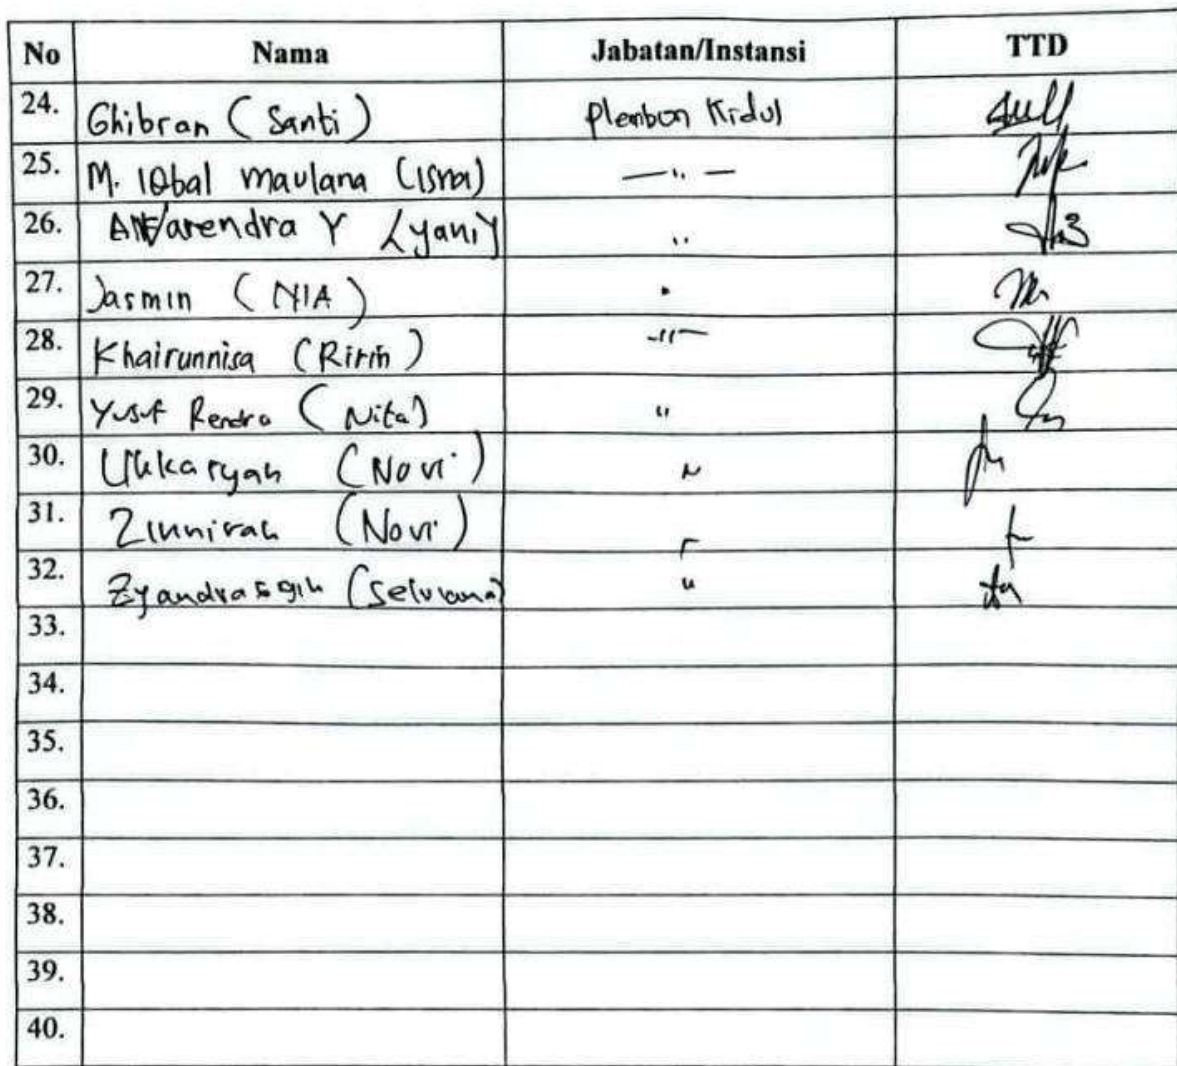 No Nama Jabatan/Instansi TTD
24. Ghibran (Santi) Plenbon Kidul
25. M. IQbal maulana (Isna) — " —
26. Varendra Y (yani) "
27. Jasmin (NIA)
28. Khairunnisa (Ririn) - " -
29. Yusuf Rendra (Nita) "
30. (Novi) "
31. Zinnirah (Novi)
32. "
33.
34.
35.
36.
37.
38.
39.
40.